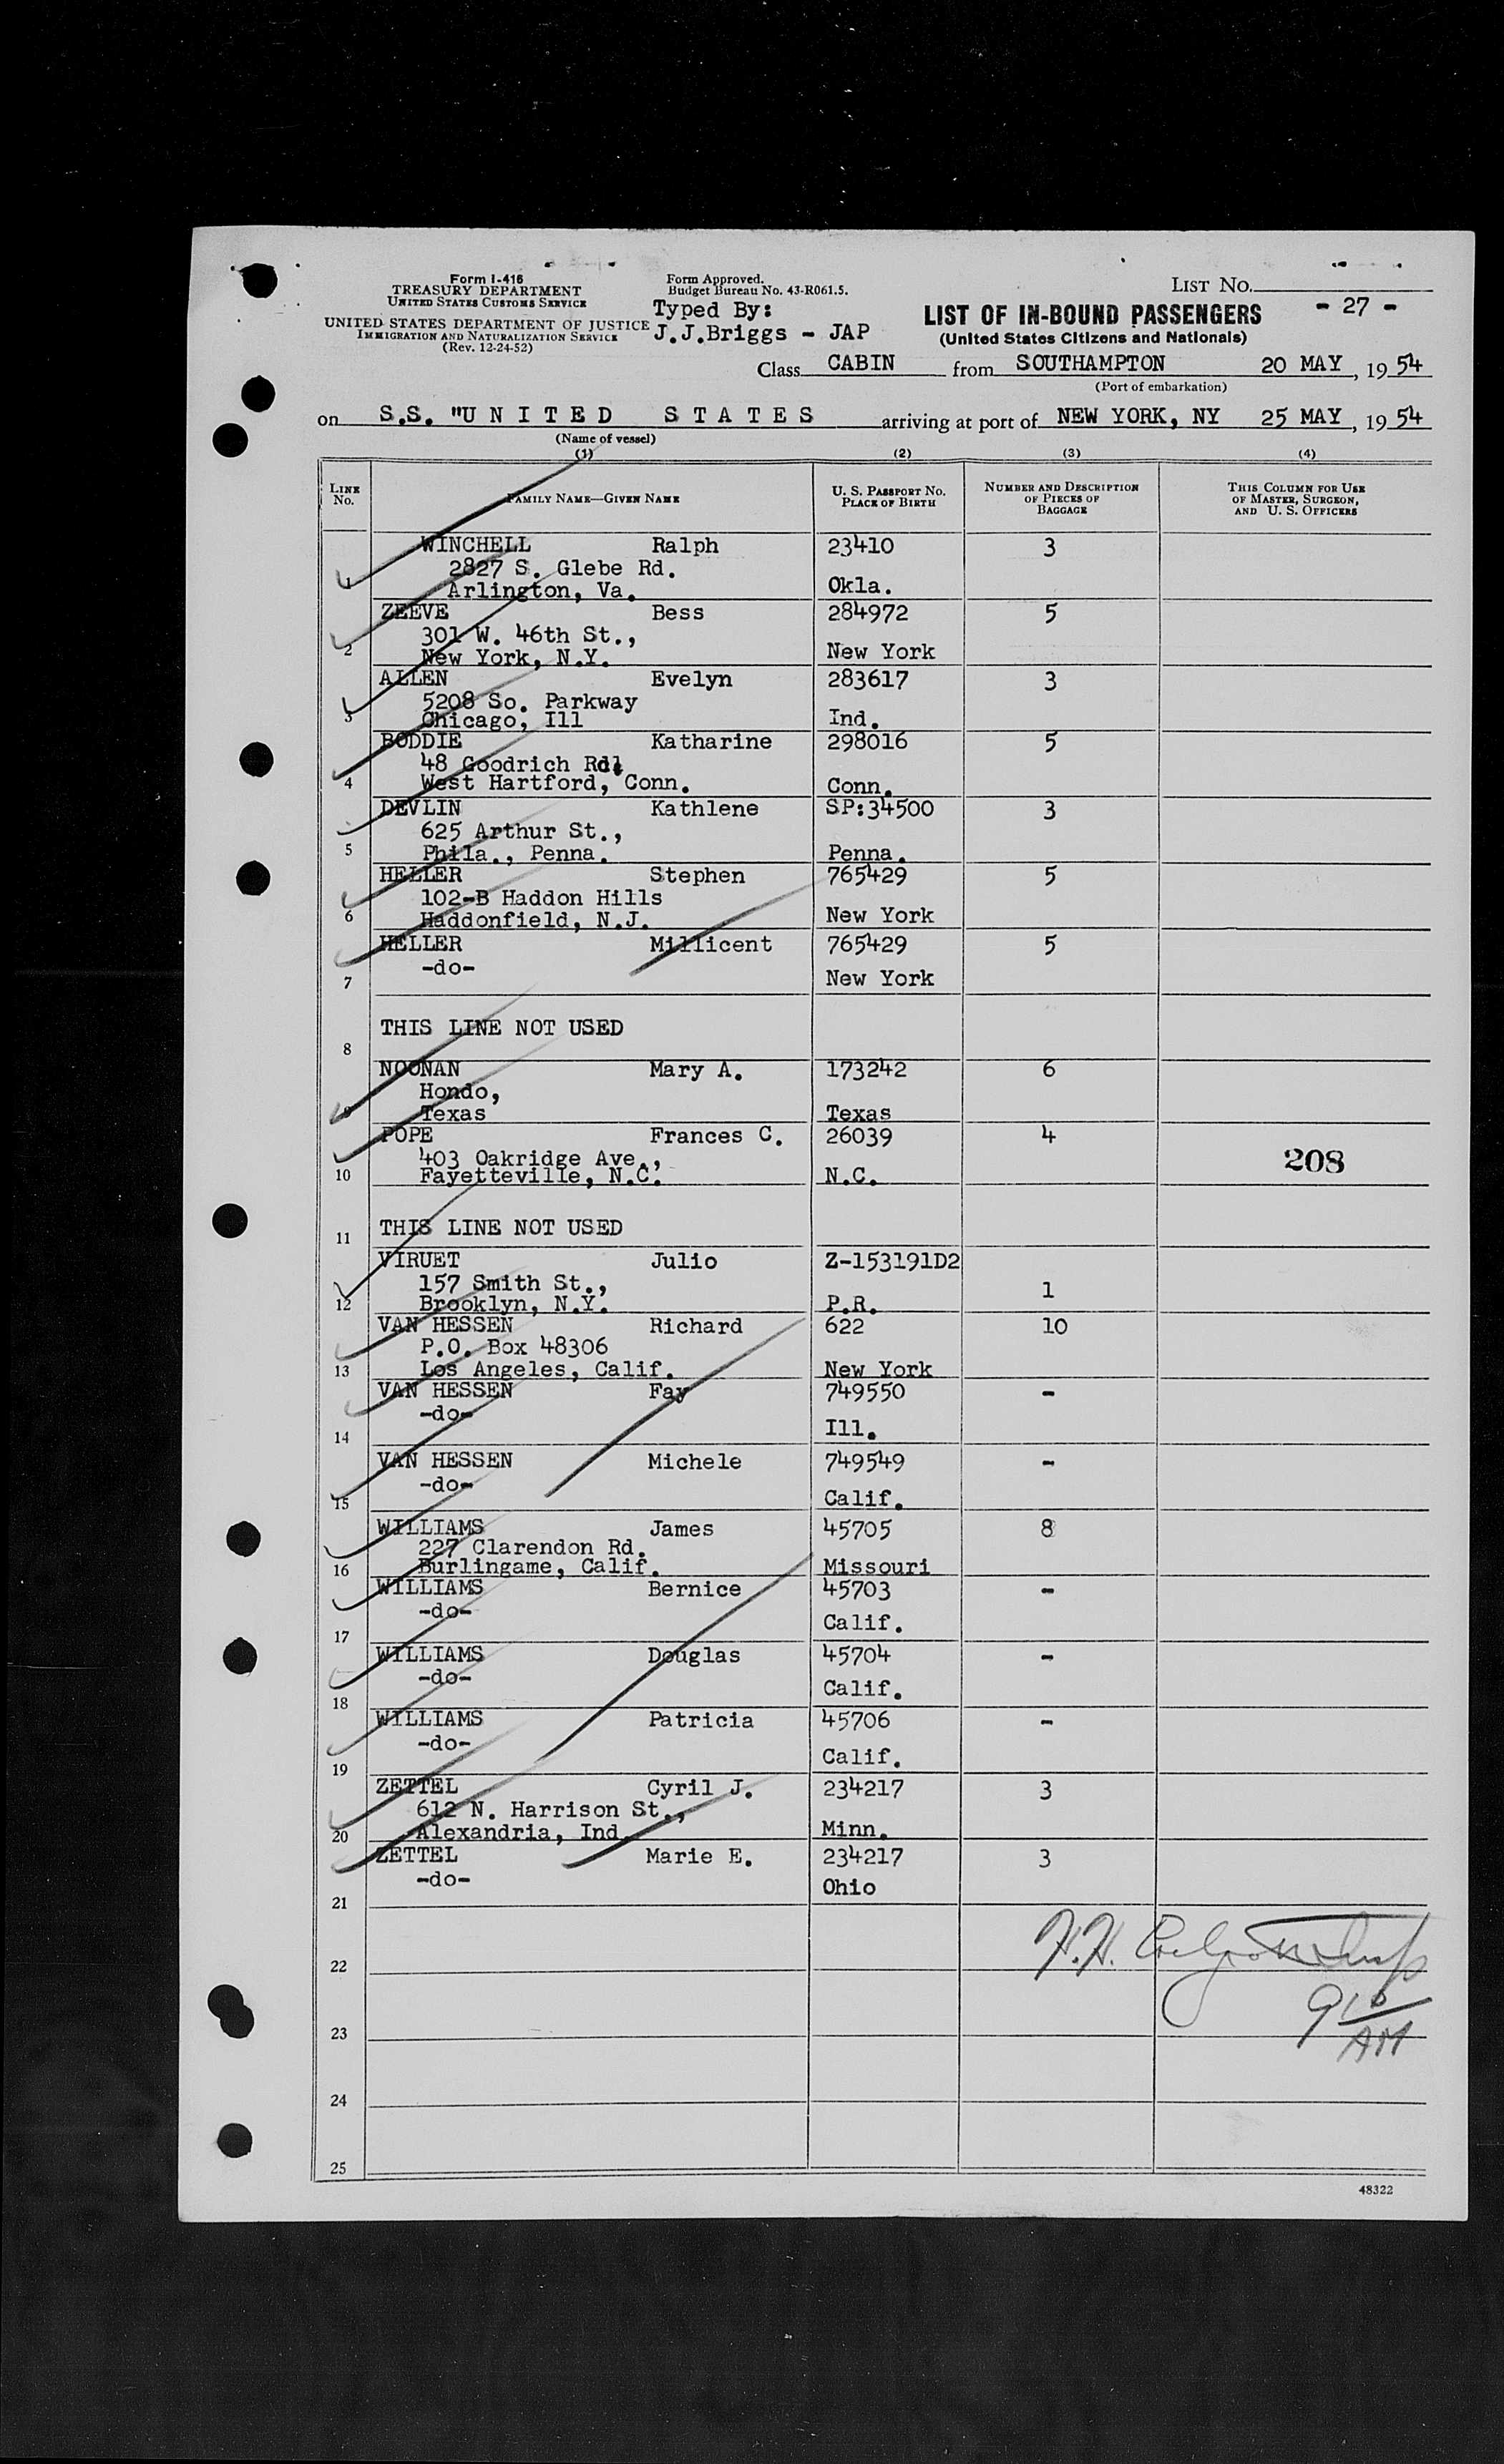 Form I-416
TREASURY DEPARTMENT
UNITED STATES CUSTOMS SERVICE
UNITED STATES DEPARTMENT OF JUSTICE
IMMIGRATION AND NATURALIZATION SERVICE
(Rev. 12-24-52)
Form Approved.
Budget Bureau No. 43-R061.5.
Typed By:
J.J.Briggs - JAP
LIST No.
- 27 -
LIST OF IN-BOUND PASSENGERS
(United States Citizens and Nationals)
Class CABIN from SOUTHAMPTON 20 MAY, 1954
(Port of embarkation)
on S.S. "U N I T E D S T A T E S arriving at port of NEW YORK, NY 25 MAY, 1954
(Name of vessel)
(1) (2) (3) (4)
LINE No. FAMILY NAME—GIVEN NAME U. S. PASSPORT No. PLACE OF BIRTH NUMBER AND DESCRIPTION OF PIECES OF BAGGAGE THIS COLUMN FOR USE OF MASTER, SURGEON, AND U. S. OFFICERS
WINCHELL Ralph 23410 3
2827 S. Glebe Rd.
1 Arlington, Va. Okla.
ZEEVE Bess 284972 5
301 W. 46th St.,
2 New York, N.Y. New York
ALLEN Evelyn 283617 3
5208 So. Parkway
3 Chicago, Ill Ind.
BODDIE Katharine 298016 5
48 Goodrich Rd.
4 West Hartford, Conn. Conn.
DEVLIN Kathlene SP:34500 3
625 Arthur St.,
5 Phila., Penna. Penna.
HELLER Stephen 765429 5
102-B Haddon Hills
6 Haddonfield, N.J. New York
HELLER Millicent 765429 5
-do-
7 New York
THIS LINE NOT USED
8
NOONAN Mary A. 173242 6
Hondo,
9 Texas Texas
POPE Frances C. 26039 4
403 Oakridge Ave.,
10 Fayetteville, N.C. N.C.
208
THIS LINE NOT USED
11
VIRUET Julio Z-153191D2
157 Smith St., 1
12 Brooklyn, N.Y. P.R.
VAN HESSEN Richard 622 10
P.O. Box 48306
13 Los Angeles, Calif. New York
VAN HESSEN Fay 749550 -
-do-
14 Ill.
VAN HESSEN Michele 749549 -
-do-
15 Calif.
WILLIAMS James 45705 8
227 Clarendon Rd.
16 Burlingame, Calif. Missouri
WILLIAMS Bernice 45703 -
-do-
17 Calif.
WILLIAMS Douglas 45704 -
-do-
18 Calif.
WILLIAMS Patricia 45706 -
-do-
19 Calif.
ZETTEL Cyril J. 234217 3
612 N. Harrison St.,
20 Alexandria, Ind. Minn.
ZETTEL Marie E. 234217 3
-do- Ohio
21
22
9 10
AM
23
24
25
48322